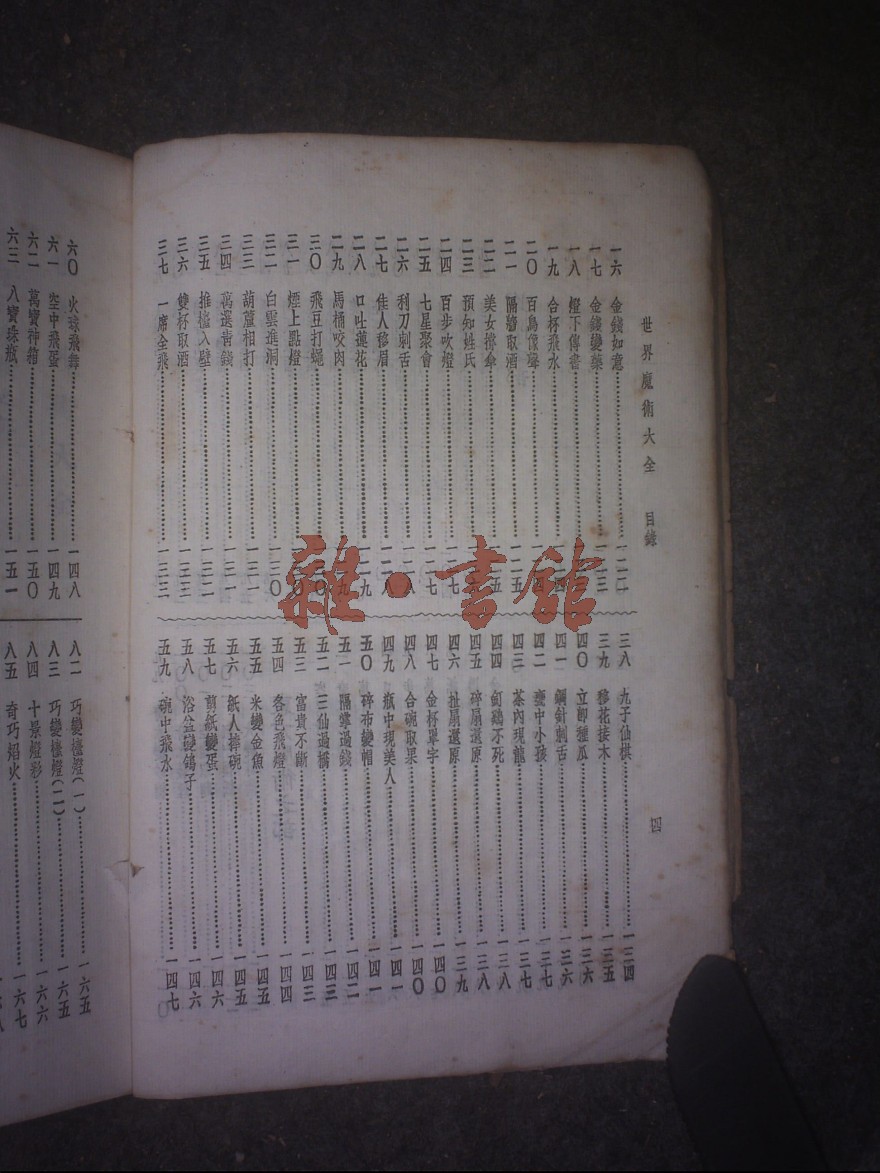 世界魔術大全 目錄 四
一六 金錢如意 一二二
一七 金錢變藥 一二三
一八 燈下傳書
一九 合杯飛水
二〇 百鳥像聲
二一 隔牆取酒
二二 美女撒傘
二三 預知姓氏
二四 百步吹燈
二五 七星聚會 一二七
二六 利刀刺舌
二七 佳人移眉
二八 口吐蓮花 一二九
二九 馬桶咬肉
三〇 飛豆打蠅
三一 煙上點燈
三二 白雲進洞 一三〇
三三 葫蘆相打 一三一
三四 萬選青錢 一三一
三五 推櫃入壁 一三二
三六 雙杯取酒 一三三
三七 一席全飛 一三三
三八 九子仙棋 一三四
三九 移花接木 一三五
四〇 立即種瓜 一三六
四一 鋼針刺舌 一三六
四二 甕中小孩 一三七
四三 茶內現龍 一三七
四四 劍鷄不死 一三八
四五 碎扇還原 一三八
四六 扯扇還原 一三九
四七 金杯單字 一四〇
四八 合碗取果 一四〇
四九 瓶中現美人 一四一
五〇 碎布變帽 一四一
五一 隔掌過錢 一四二
五二 三仙過橋 一四三
五三 富貴不斷 一四三
五四 各色飛燈 一四四
五五 米變金魚 一四五
五六 紙人摔碗 一四五
五七 剪紙變蛋 一四六
五八 浴盆變鴿子 一四六
五九 碗中飛水 一四七
六〇 火球飛舞 一四八
六一 空中飛蛋 一四九
六二 萬寶神箱 一五〇
六三 八寶珠瓶 一五一
八二 巧變檯燈(一) 一六五
八三 巧變檯燈(二) 一六五
八四 十景燈彩 一六六
八五 奇巧焰火 一六七
雜·書館